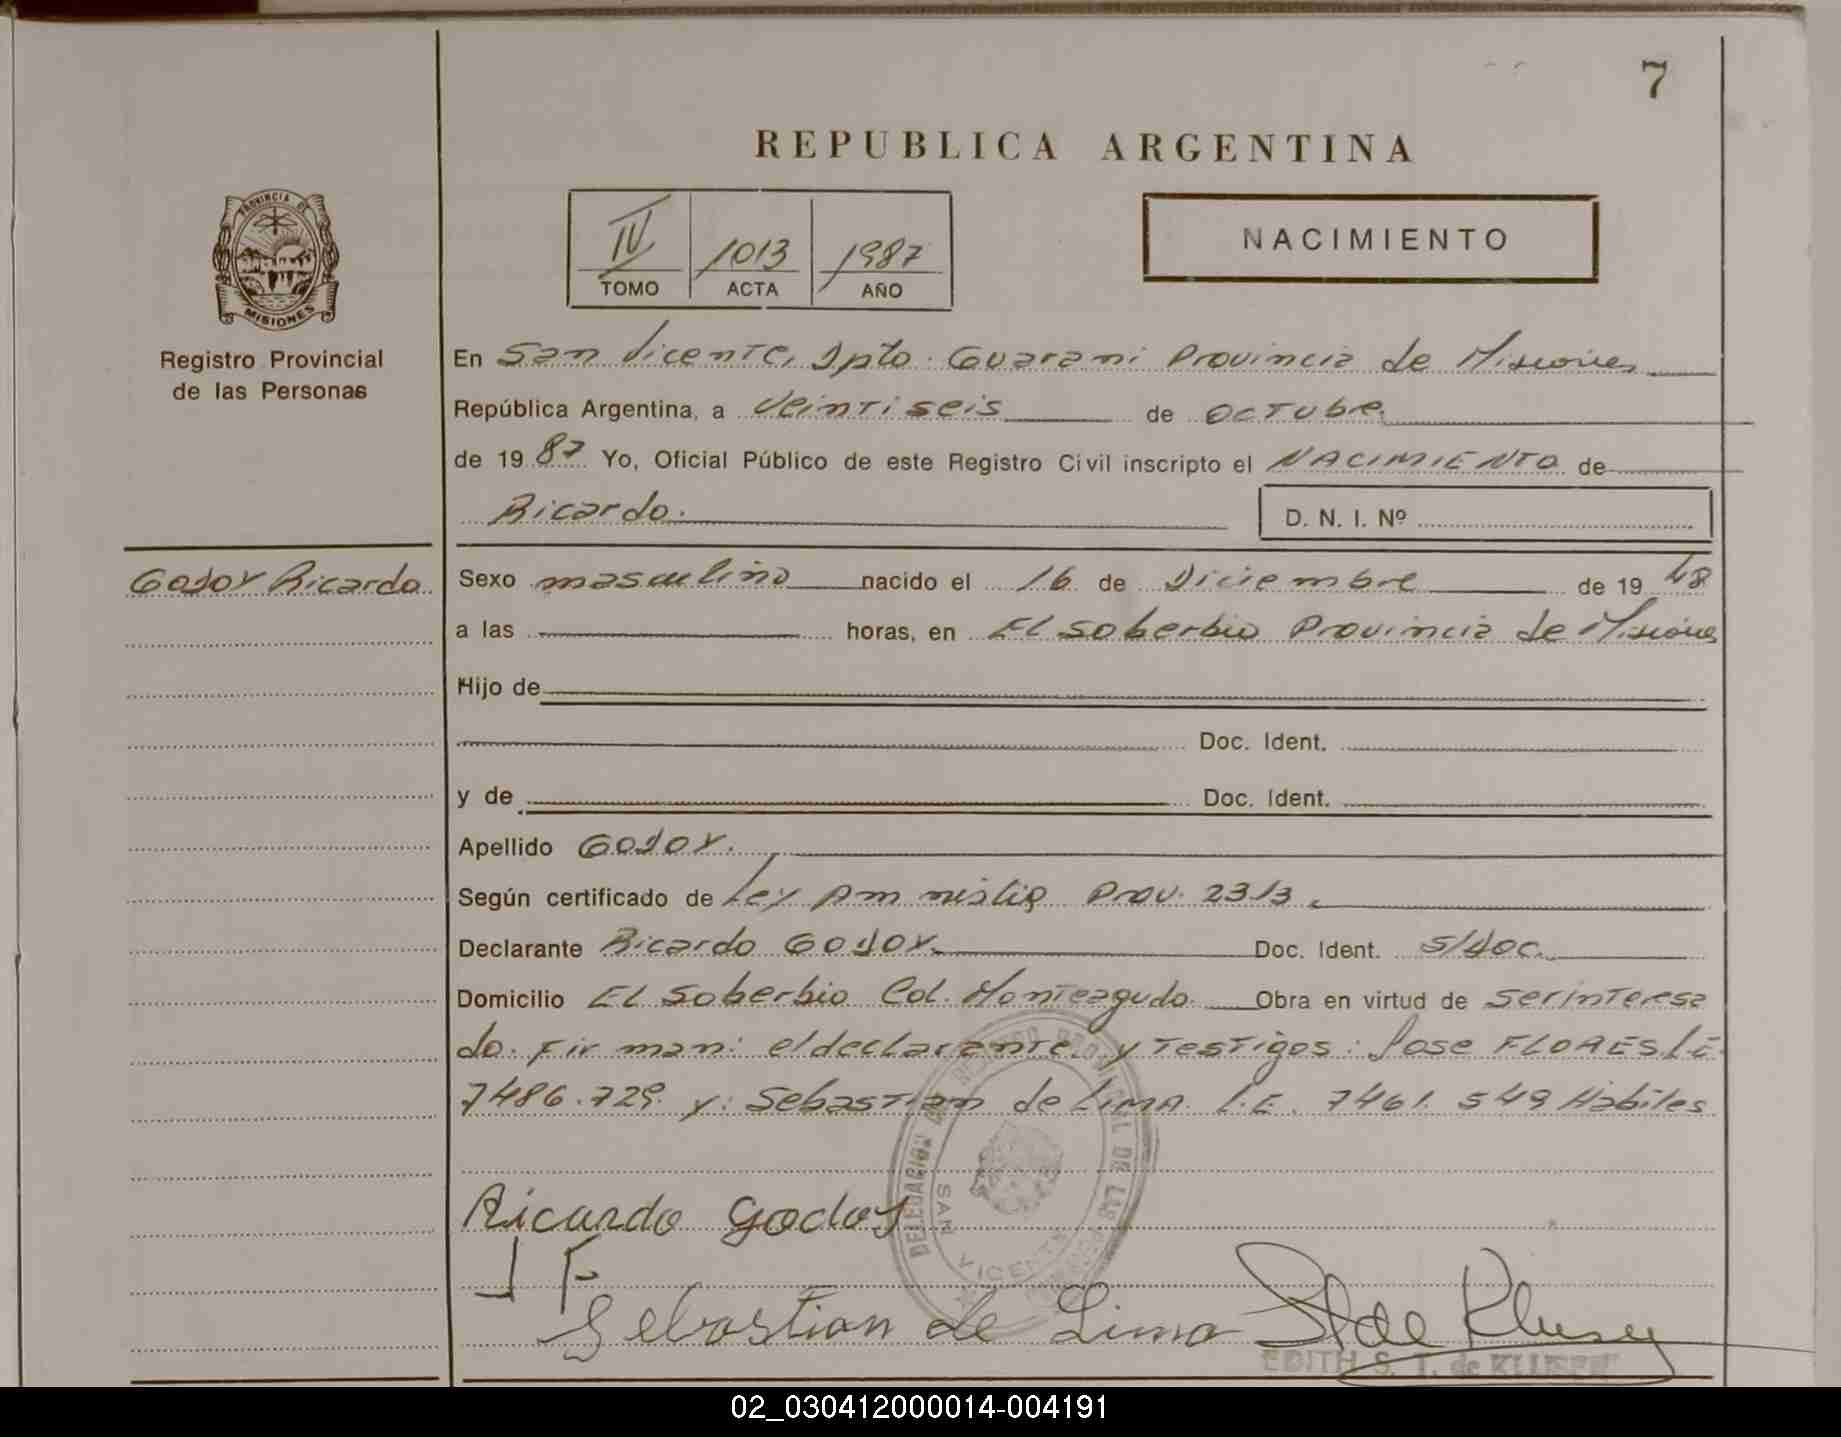 7
REPUBLICA ARGENTINA
PROVINCIA DE
MISIONES
Registro Provincial
de las Personas
IV 1013 1987
TOMO ACTA AÑO
NACIMIENTO
En San Vicente, Dpto. Guarani Provincia de Misiones
República Argentina, a Veintiseis de octubre
de 1987 Yo, Oficial Público de este Registro Civil inscripto el NACIMIENTO de
Ricardo.
D. N. I. Nº
Godoy Ricardo
Sexo masculino nacido el 16 de Diciembre de 1948
a las horas, en El Soberbio Provincia de Misiones
Hijo de
Doc. Ident.
y de Doc. Ident.
Apellido Godoy.
Según certificado de Ley Amnistia Prov. 2313
Declarante Ricardo Godoy Doc. Ident. S/doc.
Domicilio El Soberbio Col. Monteagudo. Obra en virtud de ser interesa
do. Firman: el declarante y Testigos: Jose FLORES L.E.
7486.729. y: Sebastian de Lima L.E. 7461.549 Habiles
DELEGACION DEL REGISTRO PROVINCIAL DE LAS PERSONAS
SAN VICENTE
Ricardo Godoy
J F
Sebastian de Lima
EDITH S. T. de
02_030412000014-004191